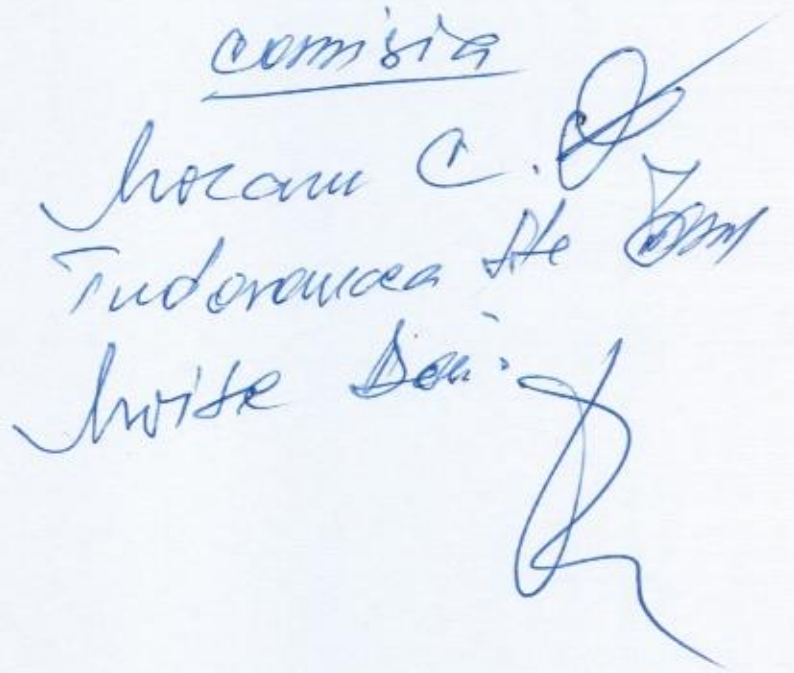 comisia
Mocanu C.
Tudorancea Ste
Moise Dan.